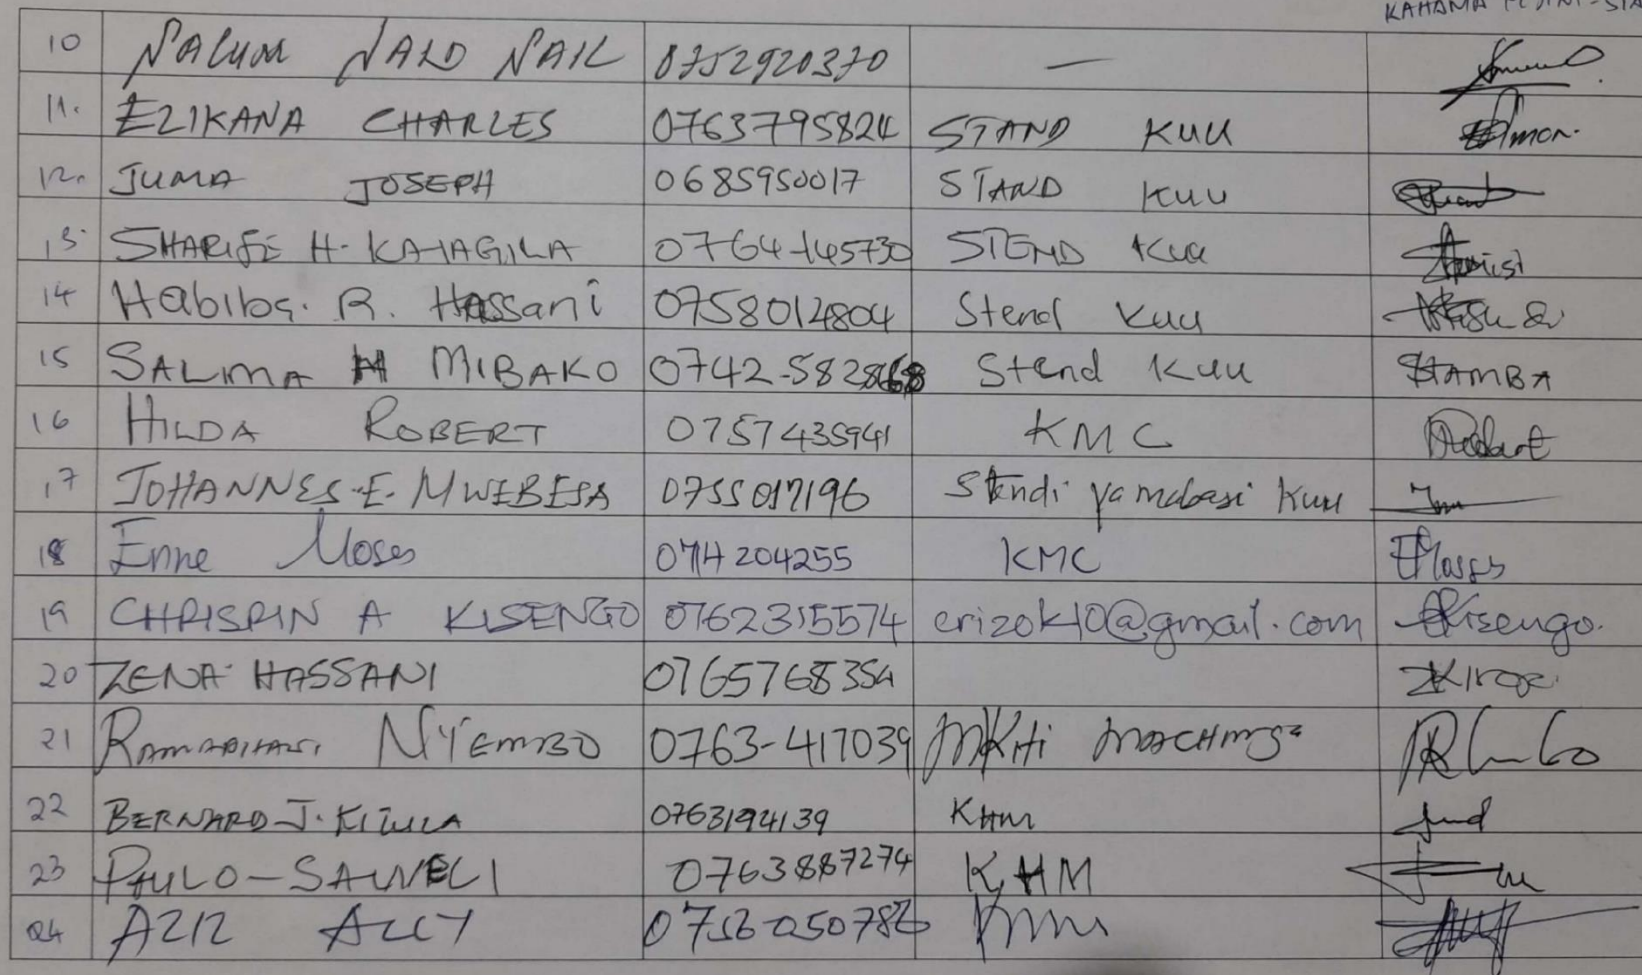 10 SALUM NALD NAIL 0752920370 —
11. EZIKANA CHARLES 0763795824 STAND KUU
12. JUMA JOSEPH 0685950017 STAND KUU
13. SHARIFE H. KAJAGILA 0764145730 STEND KUU
14 Habiba. R. Hassani 0758012804 Stend Kuu
15 SALIMA H MIBAKO 0742-582868 Stend Kuu HAMBA
16 HILDA ROBERT 0757435941 KMC
17 JOHANNES.E. MWEBESA 0755017196 Stendi ya mabasi Kuu
18 Enne Moses 0714204255 KMC EMoses
19 CHRISPIN A KISENGO 0762315574 erizok10@gmail.com Kisengo.
20 ZENA HASSANI 0765768354
21 RAMADHANI NYEMBO 0763-417039 MKiti MACHINGA
22 BERNARD J. 0763194139 KHM
23 PAULO-SAMWELI 0763887274 KHM
24 AZIZ ALLY